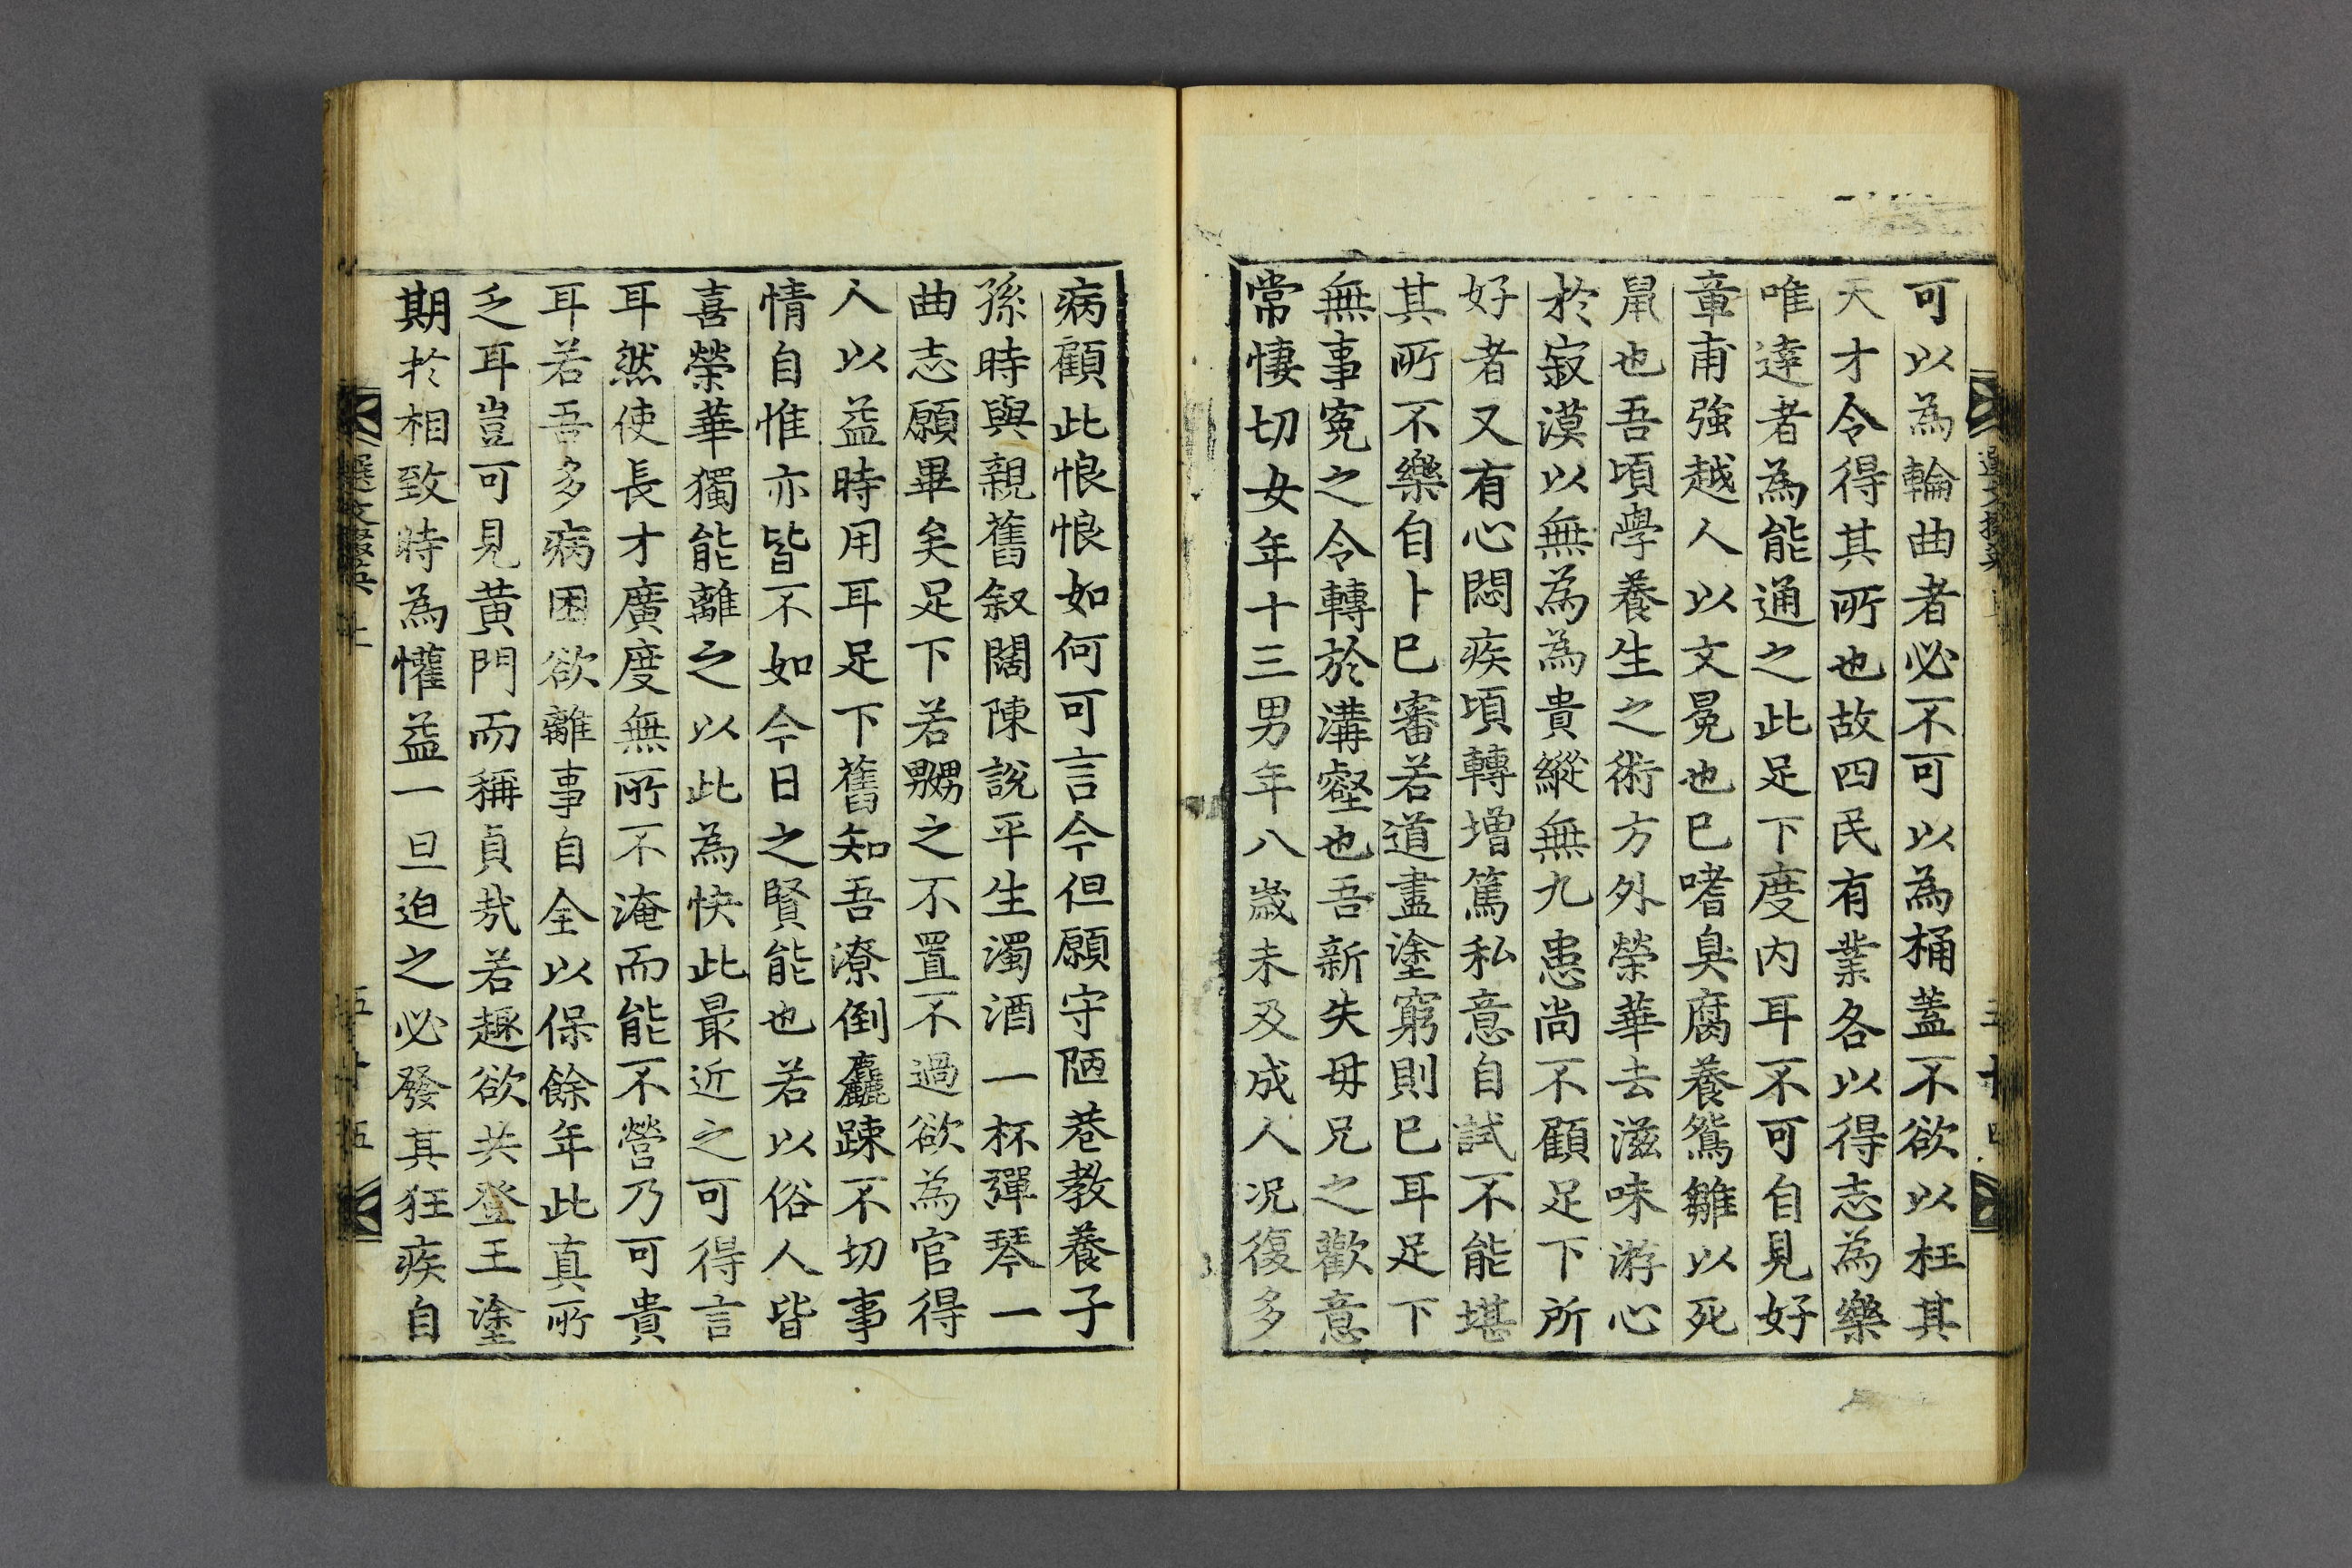 可以為輪曲者必不可以為桷蓋不欲以枉其
天才令得其所也故四民有業各以得志為樂
唯達者為能通之此足下度內耳不可自見好
章甫強越人以文冕也已嗜臭腐養鴛雛以死
鼠也吾頃學養生之術方外榮華去滋味游心
於寂漠以無為為貴縱無九患尚不顧足下所
好者又有心悶疾頃轉增篤私意自試不能堪
其所不樂自卜已審若道盡塗窮則已耳足下
無事冤之令轉於溝壑也吾新失毋兄之歡意
常悽切女年十三男年八歲未及成人况復多
病顧此悢悢如何可言今但願守陋巷教養子
孫時與親舊叙闊陳說平生濁酒一杯彈琴一
曲志願畢矣足下若嬲之不置不過欲為官得
人以益時用耳足下舊知吾潦倒麤踈不切事
情自惟亦皆不如今日之賢能也若以俗人皆
喜榮華獨能離之以此為快此最近之可得言
耳然使長才廣度無所不淹而能不營乃可貴
耳若吾多病困欲離事自全以保餘年此真所
乏耳豈可見黃門而稱貞哉若趣欲共登王塗
期於相致時為懽益一旦迫之必發其狂疾自